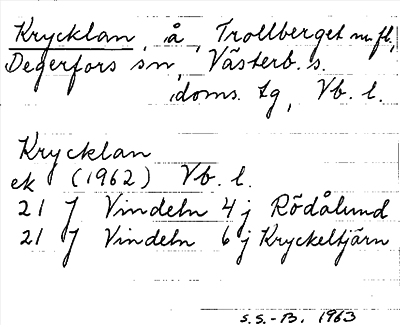 Krycklan, å, Trollberget m.fl,
Degerfors sn, Västerb. s.
doms. tg, Vb. l.
Krycklan
ek (1962) Vb. l.
21 J Vindeln 4 j Rödålund
21 J Vindeln 6 j Kryckeltjärn
S.S.-B. 1963